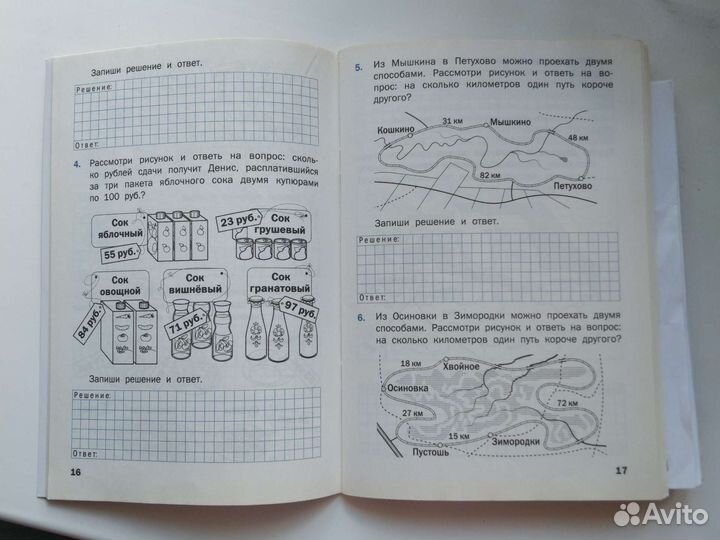 Запиши решение и ответ.
Решение:
Ответ:
4. Рассмотри рисунок и ответь на вопрос: сколь-
ко рублей сдачи получит Денис, расплатившийся
за три пакета яблочного сока двумя купюрами
по 100 руб.?
Сок
яблочный
55 руб.
23 руб.
Сок
грушевый
Сок
овощной
84 руб.
Сок
вишнёвый
71 руб.
Сок
гранатовый
97 руб.
Запиши решение и ответ.
Решение:
Ответ:
16
5. Из Мышкина в Петухово можно проехать двумя
способами. Рассмотри рисунок и ответь на во-
прос: на сколько километров один путь короче
другого?
31 км
Мышкино
Кошкино
48 км
82 км
Петухово
Запиши решение и ответ.
Решение:
Ответ:
6. Из Осиновки в Зимородки можно проехать двумя
способами. Рассмотри рисунок и ответь на вопрос:
на сколько километров один путь короче другого?
18 км
Хвойное
Осиновка
27 км
72 км
15 км
Зимородки
Пустошь
17
Avito